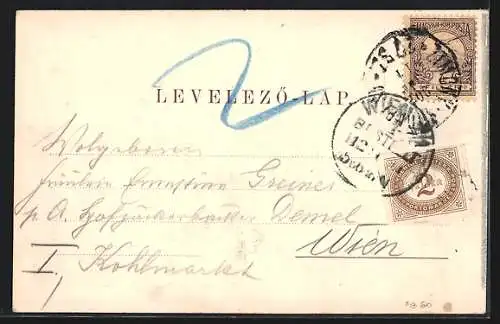 LEVELEZŐ-LAP
WIEN
2
Wolgeboren
Fräulein Ernestine Greiner
p. A. Hofzuckerbäcker Demel
Wien
I, Kohlmarkt